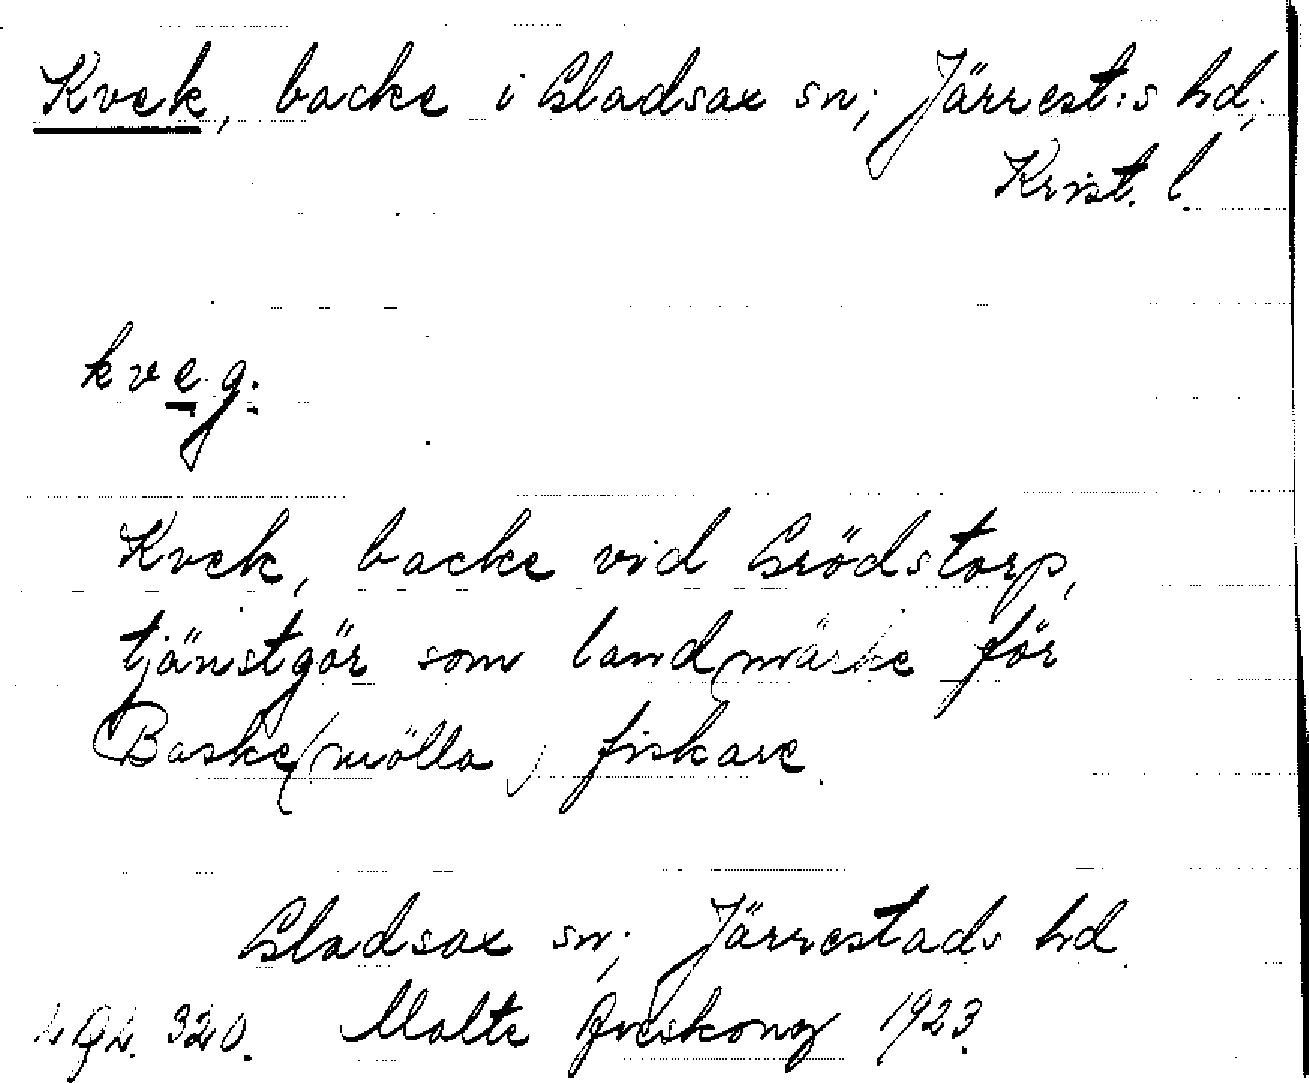 Kvek, backe i Gladsax sn; Järrest:s hd;
Krist. l.
kveg.
Kvek, backe vid Grödstorp,
tjänstgör som land(märke för
Baske(mölla) fiskare.
Gladsax sn; Järrestads hd.
320. Malte Areskoug 1923.